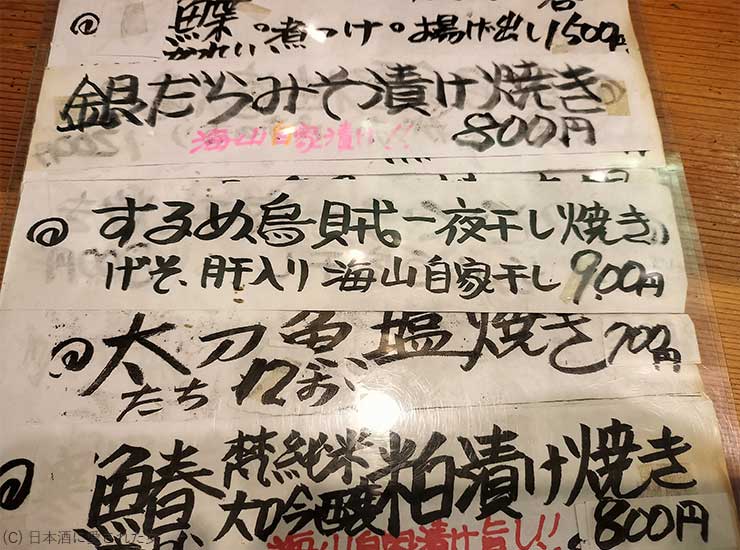 鰈 煮つけ・お揚げ出し1500円
がれい
銀だらみそ漬け焼き
海山自家漬け!! 800円
するめ烏賊一夜干し焼き
げそ、肝入り海山自家干し 900円
太刀魚塩焼き 700円
たちいお
鰆 梵純米大吟醸粕漬け焼き
海山自家漬け旨し!! 800円
(C) 日本酒に